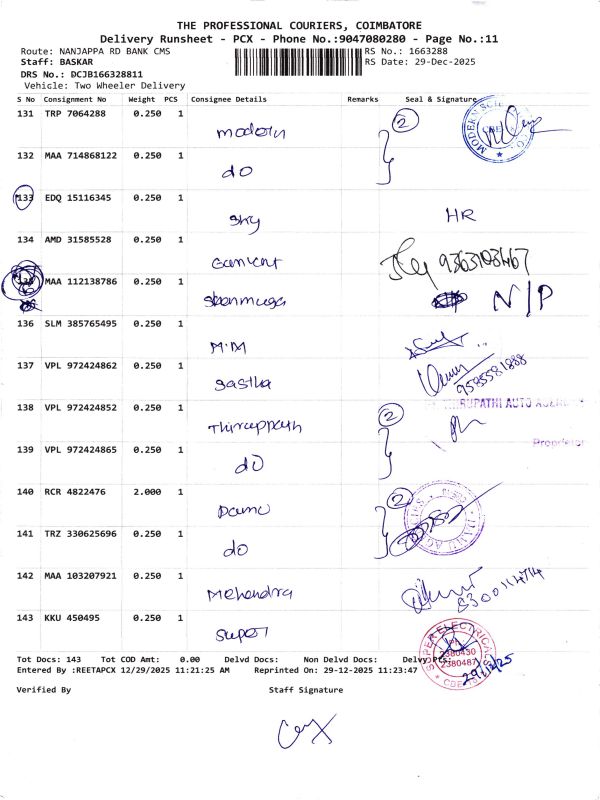 THE PROFESSIONAL COURIERS, COIMBATORE
Delivery Runsheet - PCX - Phone No.:9047080280 - Page No.:11
Route: NANJAPPA RD BANK CMS RS No.: 1663288
Staff: BASKAR RS Date: 29-Dec-2025
DRS No.: DCJB166328811
Vehicle: Two Wheeler Delivery
S No Consignment No Weight PCS Consignee Details Remarks Seal & Signature
131 TRP 7064288 0.250 1 modern 2
132 MAA 714868122 0.250 1 do
133 EDQ 15116345 0.250 1 sky HR
134 AMD 31585528 0.250 1
MAA 112138786 0.250 1 shanmuga N/P
136 SLM 385765495 0.250 1 M.M
137 VPL 972424862 0.250 1 sastha 9585581888
138 VPL 972424852 0.250 1 2
THIRUPATHI AUTO
139 VPL 972424865 0.250 1 do
Proprietor
140 RCR 4822476 2.000 1 2
141 TRZ 330625696 0.250 1 do
142 MAA 103207921 0.250 1 Mehendra
143 KKU 450495 0.250 1 super
SUPER ELECTRICAL
2380430
2380487
29/12/25
Tot Docs: 143 Tot COD Amt: 0.00 Delvd Docs: Non Delvd Docs: Delvy Pts:
Entered By :REETAPCX 12/29/2025 11:21:25 AM Reprinted On: 29-12-2025 11:23:47
Verified By Staff Signature